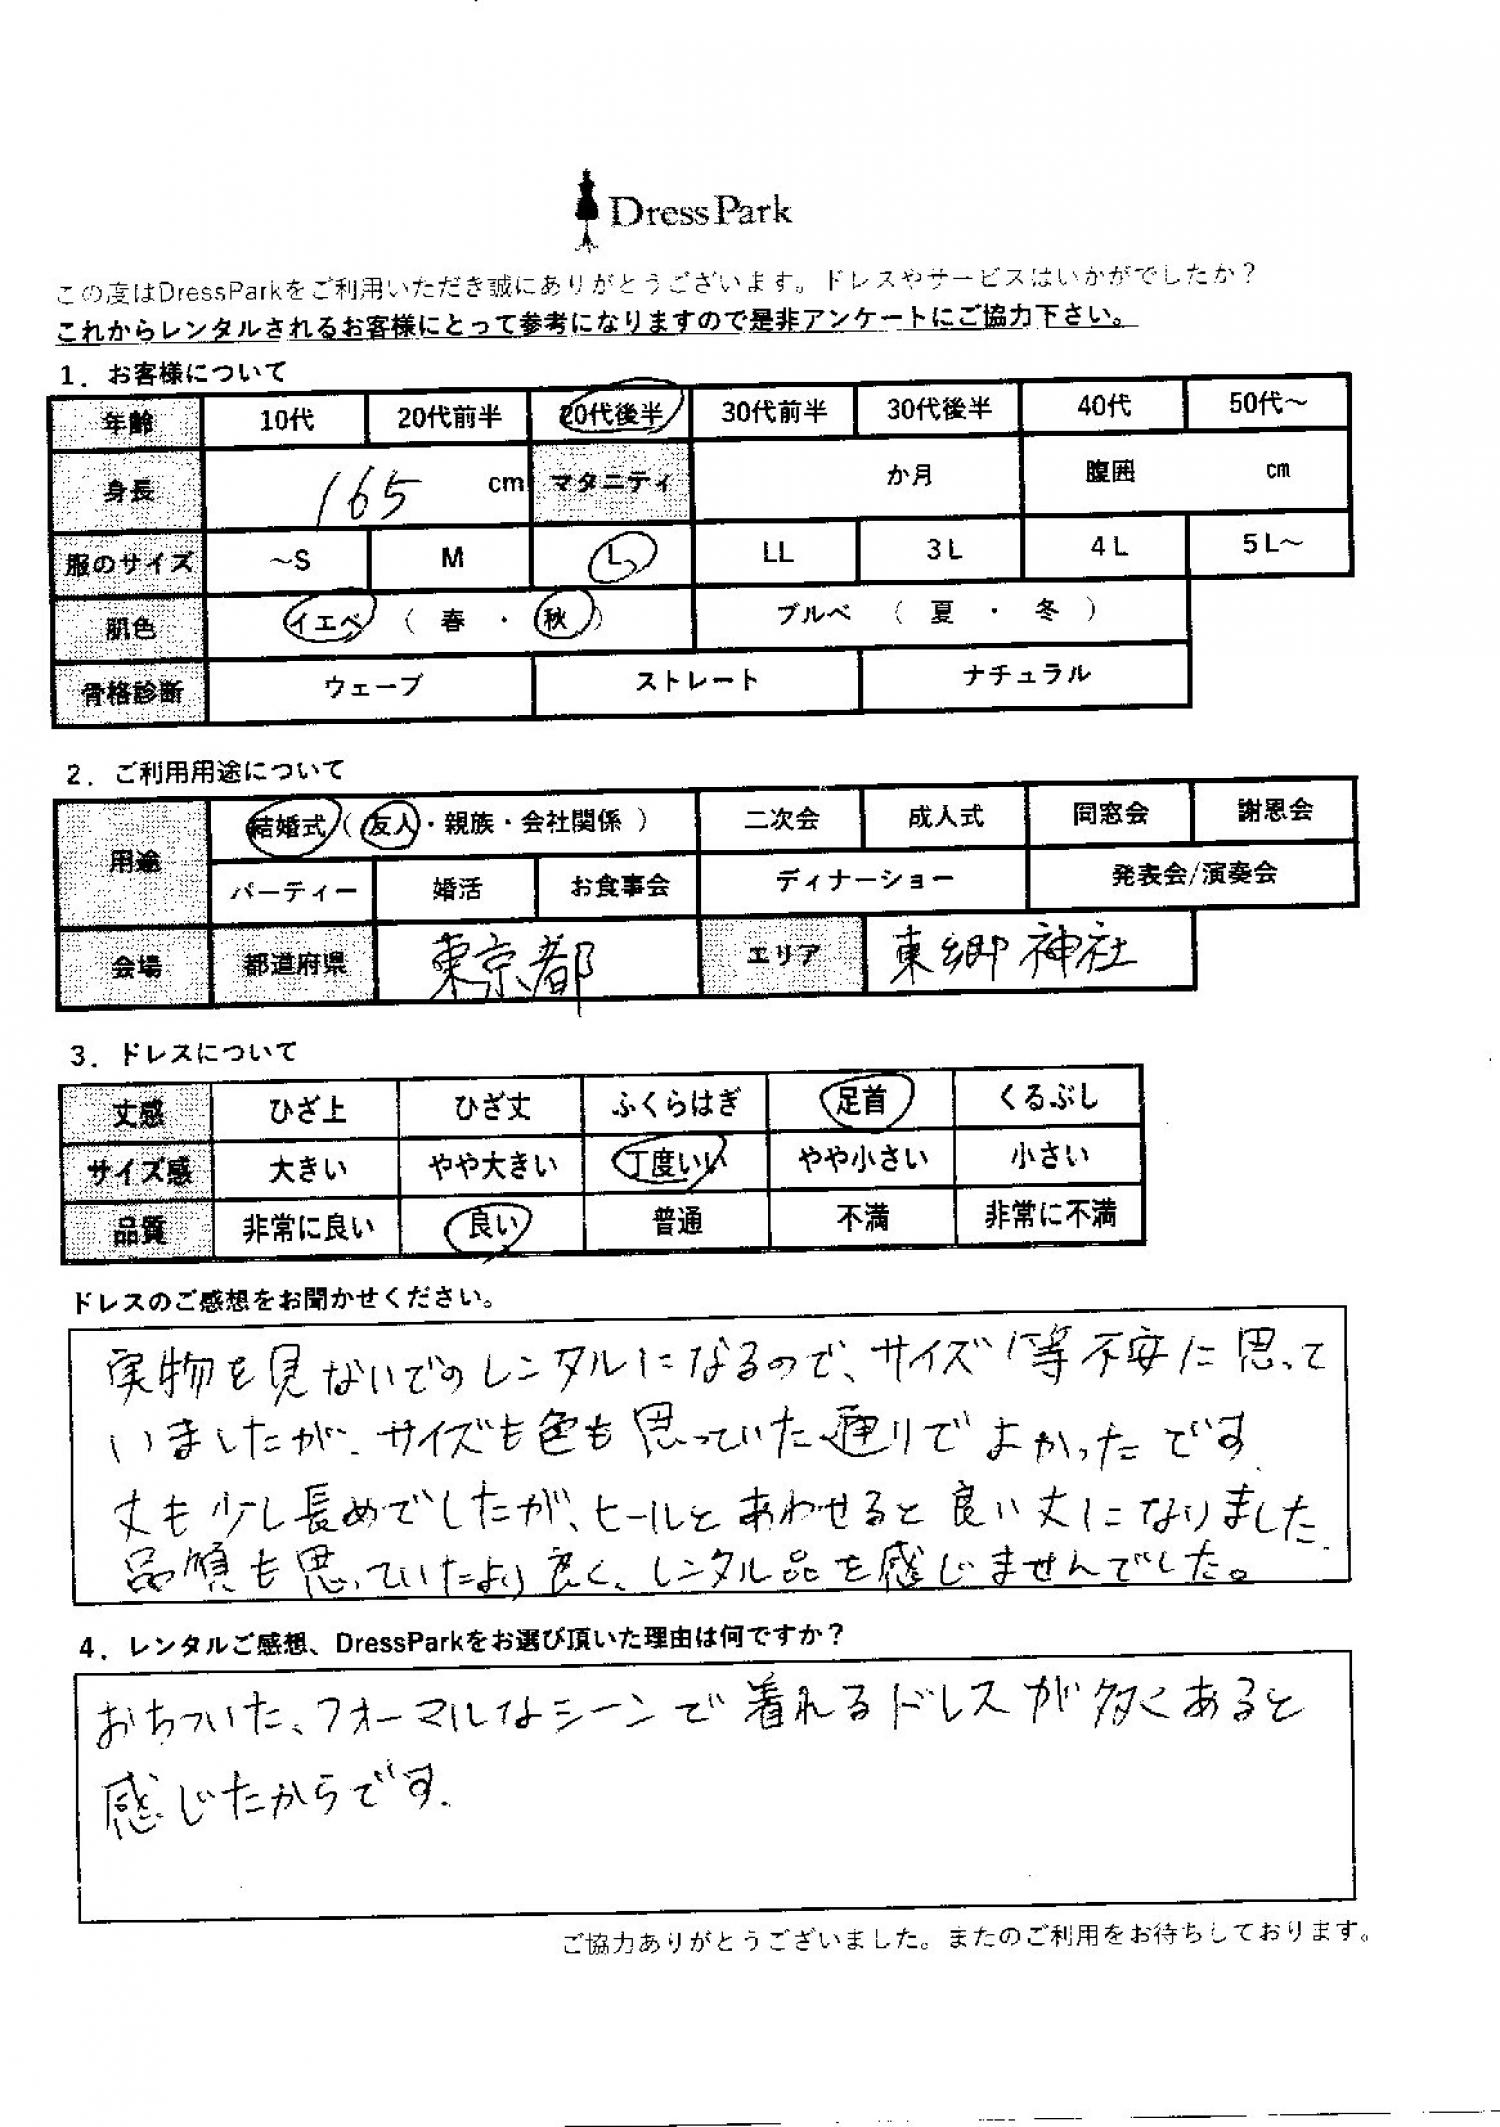 DressPark
この度はDressParkをご利用いただき誠にありがとうございます。ドレスやサービスはいかがでしたか？
これからレンタルされるお客様にとって参考になりますので是非アンケートにご協力下さい。
1．お客様について
年齢 10代 20代前半 20代後半 30代前半 30代後半 40代 50代～
身長 165 cm マタニティ か月 腹囲 cm
服のサイズ ～S M L LL 3L 4L 5L～
肌色 イエベ（ 春 ・ 秋 ） ブルベ （ 夏 ・ 冬 ）
骨格診断 ウェーブ ストレート ナチュラル
2．ご利用用途について
用途 結婚式（ 友人・親族・会社関係 ） 二次会 成人式 同窓会 謝恩会
パーティー 婚活 お食事会 ディナーショー 発表会/演奏会
会場 都道府県 東京都 エリア 東郷神社
3．ドレスについて
丈感 ひざ上 ひざ丈 ふくらはぎ 足首 くるぶし
サイズ感 大きい やや大きい 丁度いい やや小さい 小さい
品質 非常に良い 良い 普通 不満 非常に不満
ドレスのご感想をお聞かせください。
実物を見ないでのレンタルになるので、サイズ等不安に思って
いましたが、サイズも色も思っていた通りでよかったです。
丈も少し長めでしたが、ヒールとあわせると良い丈になりました。
品質も思っていたより良く、レンタル品を感じませんでした。
4．レンタルご感想、DressParkをお選び頂いた理由は何ですか？
おちついた、フォーマルなシーンで着れるドレスが多くあると
感じたからです。
ご協力ありがとうございました。またのご利用をお待ちしております。